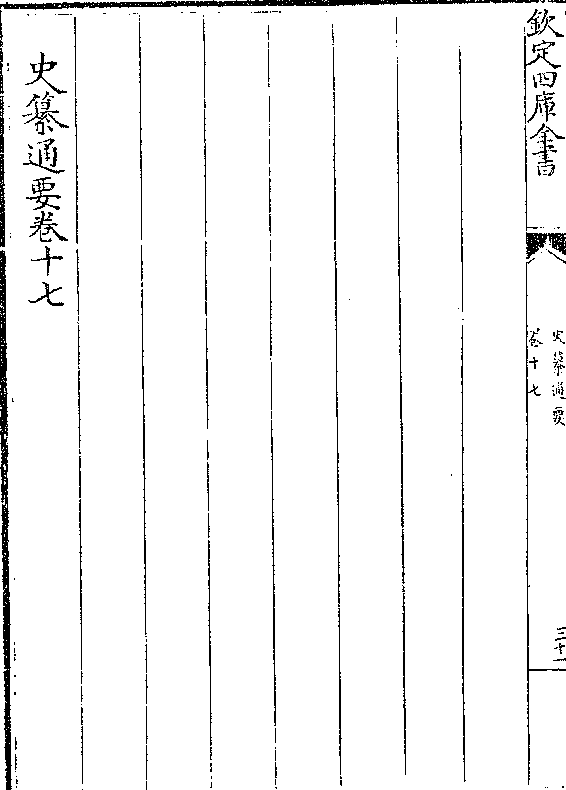 欽定四庫全書
史纂通要
卷十七
三十一
史纂通要卷十七